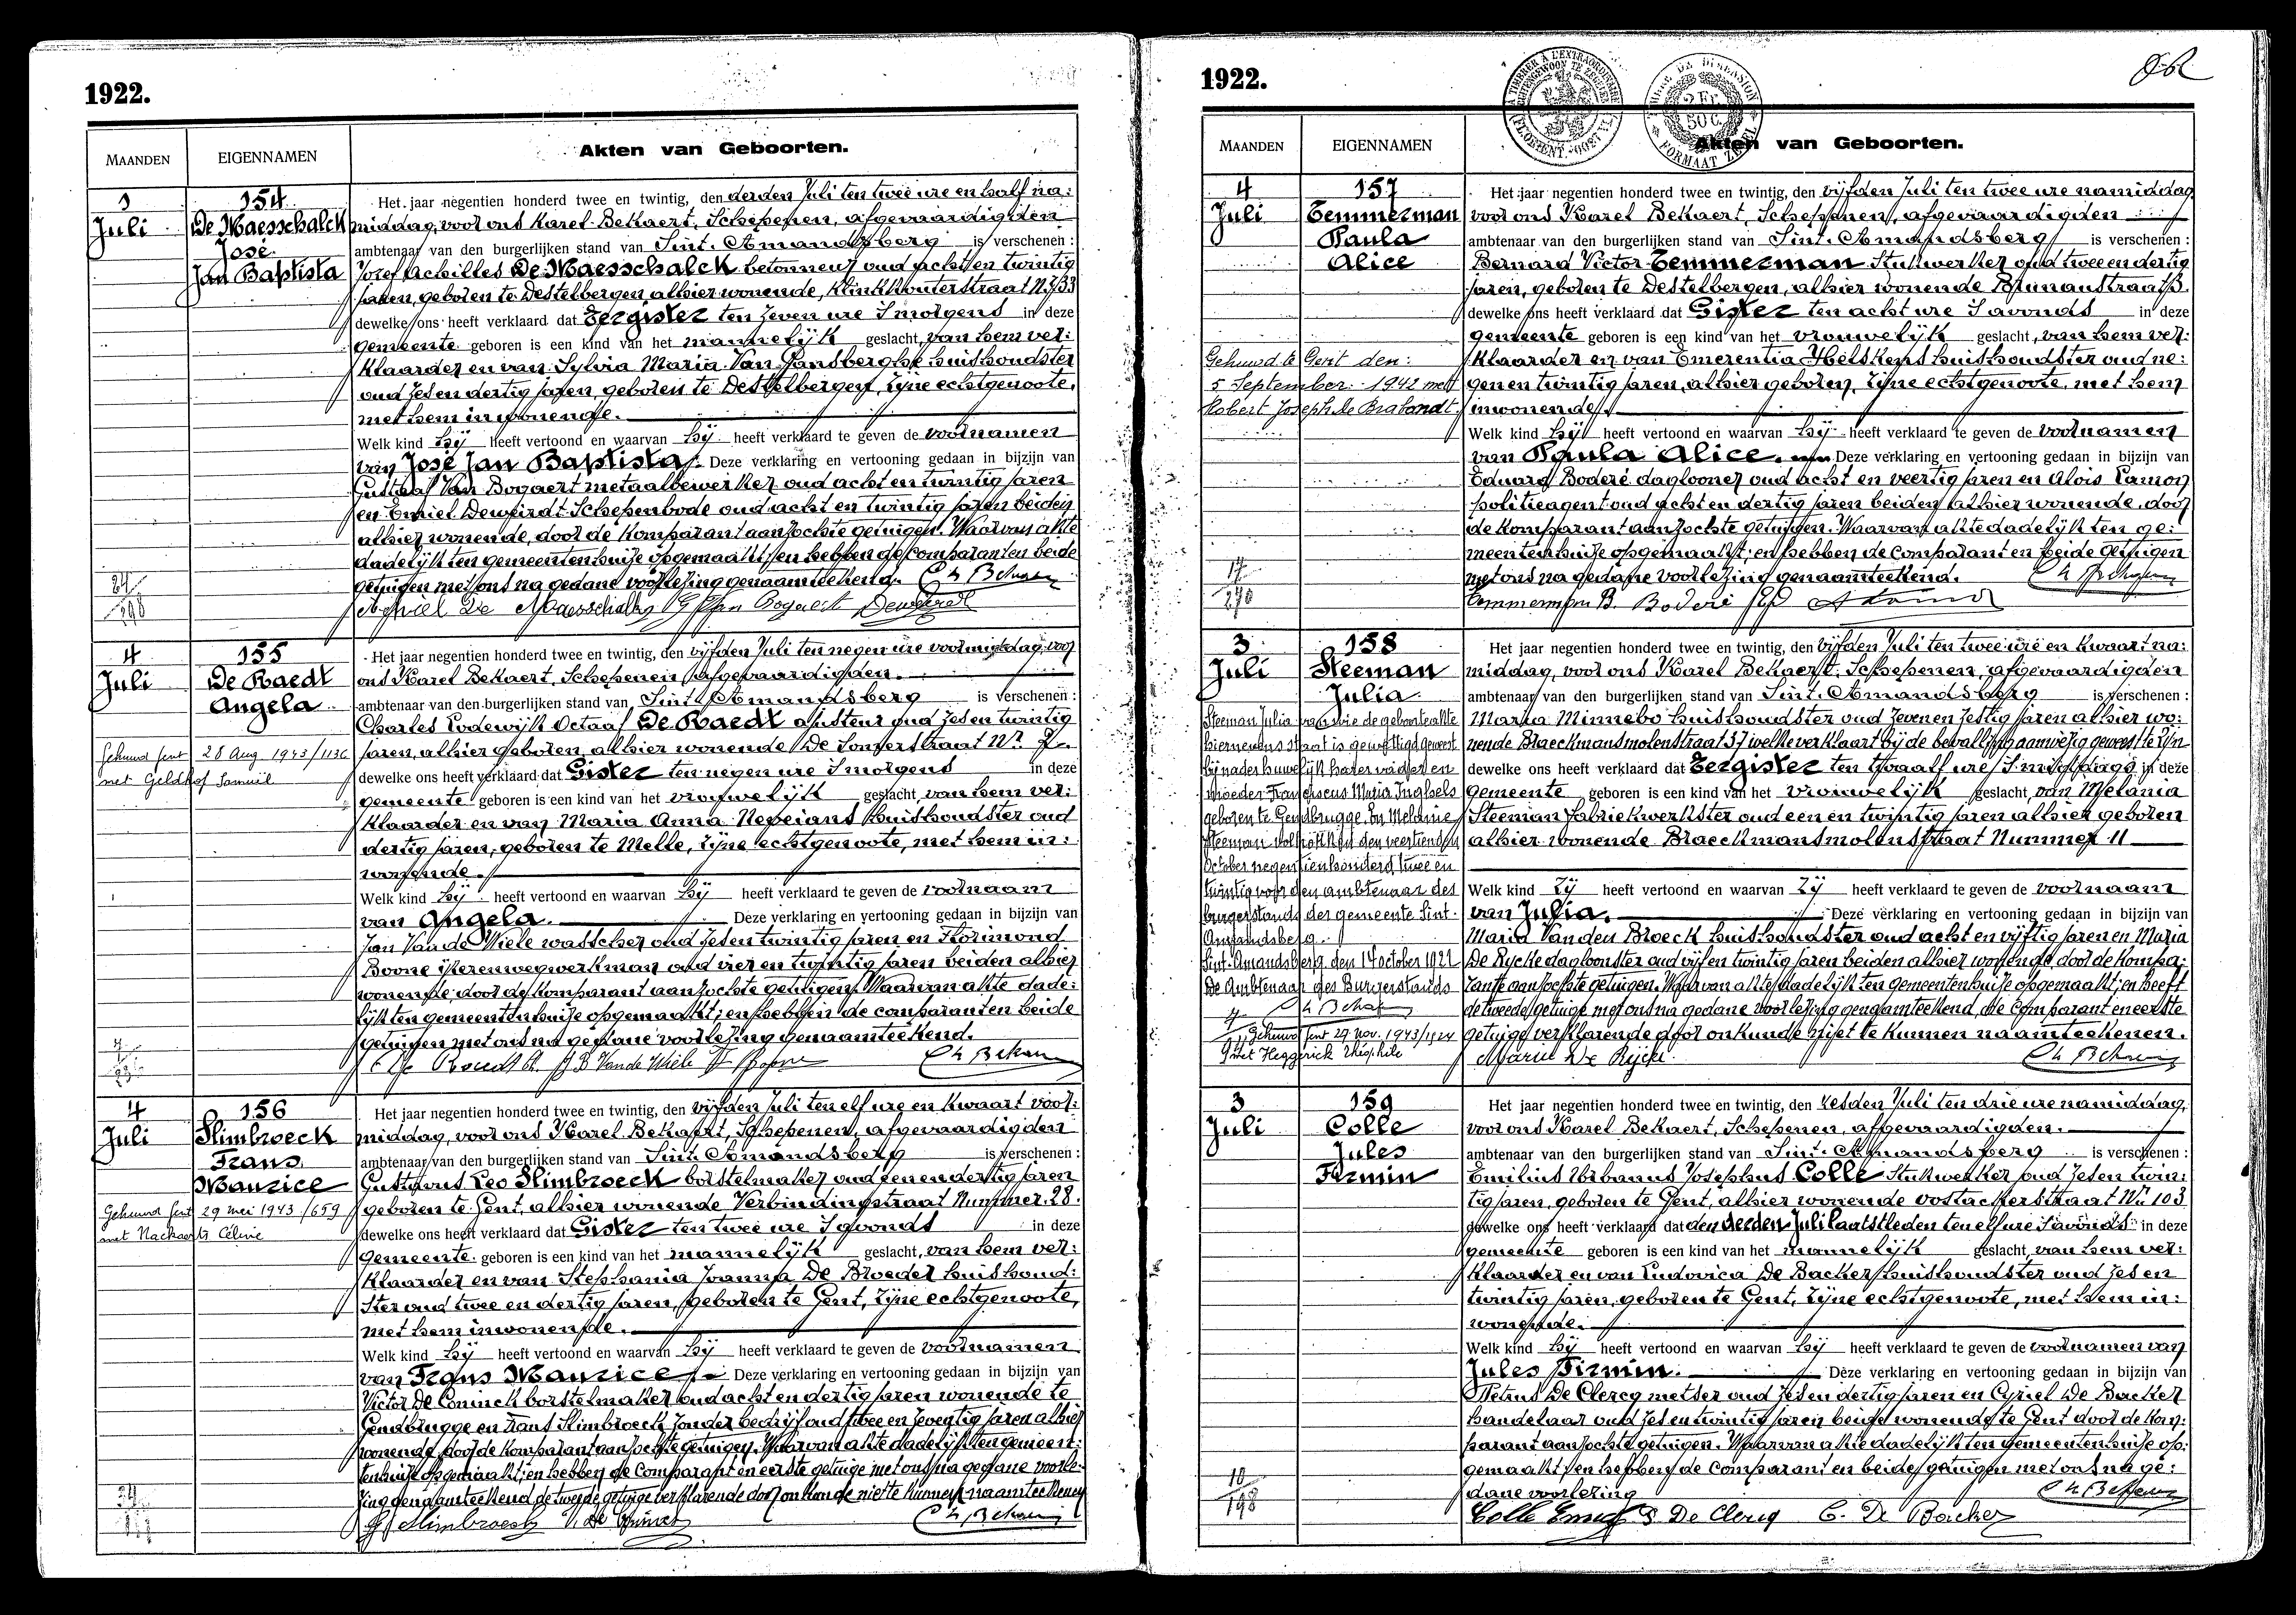 1922.
MAANDEN
EIGENNAMEN
Akten van Geboorten.
1
Juli
154
De Maesschalck
José
Jan Baptista
Het jaar negentien honderd twee en twintig, den derden Juli ten twee ure en half na:
middag, voor ons Karel Bekaert, Schepenen, afgevaardigden
ambtenaar van den burgerlijken stand van Sint. Amandsberg is verschenen:
Jozef Achilles De Maesschalck betonneur oud acht en twintig
jaren, geboren te Destelbergen, alhier wonende, Klinkkouterstraat Nr 33
dewelke ons heeft verklaard dat Eergister ten zeven ure s'morgens in deze
gemeente geboren is een kind van het mannelijk geslacht, van hem ver:
klaarder en van Sylvia Maria Van Hansberghe huishoudster
oud zes en dertig jaren, geboren te Destelbergen, zijne echtgenoote,
met hem inwonende.
Welk kind hij heeft vertoond en waarvan hij heeft verklaard te geven de voornamen
van José Jan Baptista. Deze verklaring en vertooning gedaan in bijzijn van
Gustaaf Van Bogaert metaalbewerker oud acht en twintig jaren
en Emiel Deweirdt Schepenbode oud acht en twintig jaren beiden
alhier wonende, door de komparant aanzochte getuigen. Waarvan akte
dadelijk ten gemeentenhuize opgemaakt; en hebben de comparant en beide
getuigen met ons na gedane voorlezing genaamteekend. Ch Bekaert
De Maesschalck G Van Bogaert Deweirdt
4
Juli
155
De Raedt
Angela
Gehuwd Gent 28 Aug 1943/1136
met Geldhof Samuel
Het jaar negentien honderd twee en twintig, den vijfden Juli ten negen ure voormiddag, voor
ons Karel Bekaert, Schepenen, afgevaardigden
ambtenaar van den burgerlijken stand van Sint. Amandsberg is verschenen:
Charles Lodewijk Octaaf De Raedt ajusteur oud zes en twintig
jaren, alhier geboren, alhier wonende De Somerstraat Nr 7
dewelke ons heeft verklaard dat Gister ten negen ure s'morgens in deze
gemeente geboren is een kind van het vrouwelijk geslacht, van hem ver:
klaarder en van Maria Anna Neveians huishoudster oud
dertig jaren, geboren te Melle, zijne echtgenoote, met hem in:
wonende.
Welk kind hij heeft vertoond en waarvan hij heeft verklaard te geven de voornaam
van Angela. Deze verklaring en vertooning gedaan in bijzijn van
Jan Van de Wiele wasscher oud zes en twintig jaren en Florimond
Boone ijzerenwegwerkman oud vier en twintig jaren beiden alhier
wonende door de komparant aanzochte getuigen. Waarvan akte dade:
lijk ten gemeentenhuize opgemaakt; en hebben de comparant en beide
getuigen met ons na gedane voorlezing genaamteekend.
De Raedt Ch. J B Van de Wiele F Boone Ch Bekaert
4
Juli
156
Slimbroeck
Frans
Maurice
Gehuwd Gent 29 mei 1943/659
met Nachaerts Céline
Het jaar negentien honderd twee en twintig, den vijfden Juli ten elf ure en kwaart voor:
middag, voor ons Karel Bekaert, Schepenen, afgevaardigden
ambtenaar van den burgerlijken stand van Sint. Amandsberg is verschenen:
Gustavus Leo Slimbroeck borstelmaker oud een en dertig jaren
geboren te Gent, alhier wonende Verbindingstraat Nummer 28.
dewelke ons heeft verklaard dat Gister ten twee ure s'avonds in deze
gemeente geboren is een kind van het mannelijk geslacht, van hem ver:
klaarder en van Stephania Joanna De Broeder huishoud:
ster oud twee en dertig jaren, geboren te Gent, zijne echtgenoote,
met hem inwonende.
Welk kind hij heeft vertoond en waarvan hij heeft verklaard te geven de voornamen
van Frans Maurice. Deze verklaring en vertooning gedaan in bijzijn van
Victor De Coninck borstelmaker oud acht en dertig jaren wonende te
Gendbrugge en Frans Slimbroeck zonder bedrijf oud twee en zeventig jaren alhier
wonende, door de komparant aanzochte getuigen. Waarvan akte dadelijk ten gemeen:
tenhuize opgemaakt; en hebben de Comparant en eerste getuige met ons na gedane voorle:
zing genaamteekend, de tweede getuige verklarende door onkunde niet te kunnen naamteekenen
G Slimbroeck V. De Coninck Ch Bekaert
1922.
MAANDEN
EIGENNAMEN
Akten van Geboorten.
4
Juli
157
Temmerman
Paula
Alice
Gehuwd te Gent den:
5 September 1942 met
Robert Joseph De Brabandt.
17
Het jaar negentien honderd twee en twintig, den vijfden Juli ten twee ure namiddag,
voor ons Karel Bekaert, Schepenen, afgevaardigden
ambtenaar van den burgerlijken stand van Sint. Amandsberg is verschenen:
Bernard Victor Temmerman Stukwerker oud twee en dertig
jaren, geboren te Destelbergen, alhier wonende
dewelke ons heeft verklaard dat Gister ten acht ure s'avonds in deze
gemeente geboren is een kind van het vrouwelijk geslacht, van hem ver:
klaarder en van Emerentia Helskens huishoudster oud ne:
gen en twintig jaren, alhier geboren, zijne echtgenoote, met hem
inwonende.
Welk kind hij heeft vertoond en waarvan hij heeft verklaard te geven de voornamen
van Paula Alice. Deze verklaring en vertooning gedaan in bijzijn van
Eduard Boderé daglooner oud acht en veertig jaren en Alois Lamon
politieagent oud acht en dertig jaren beiden alhier wonende, door
de komparant aanzochte getuigen. Waarvan akte dadelijk ten ge:
meentenhuize opgemaakt; en hebben de comparant en beide getuigen
met ons na gedane voorlezing genaamteekend. Ch Bekaert
Temmerman B. Boderé Ed
3
Juli
158
Steeman
Julia
Steeman Julia van wie de geboorteakte
hiernevens staat is gewettigd geweest
bij nader huwelijk harer vader en
moeder Franciscus Maria Inghels
geboren te Gendbrugge. En Melanie
Steeman voltrokken den veertienden
October negentienhonderd twee en
twintig voor den ambtenaar des
burgerstands der gemeente Sint-
Amandsberg.
Sint. Amandsberg, den 14 october 1922
De Ambtenaar des Burgerstands
Ch Bekaert
Gehuwd Gent 29 Nov. 1943/1524
met Heggerick Théophile
Het jaar negentien honderd twee en twintig, den vijfden Juli ten twee ure en kwaart na:
middag, voor ons Karel Bekaert, Schepenen, afgevaardigden
ambtenaar van den burgerlijken stand van Sint. Amandsberg is verschenen:
Maria Minnebo huishoudster oud zeven en zestig jaren alhier wo:
nende Blaeckmansmolenstraat 37 welke verklaart bij de bevalling aanwezig geweest te zijn
dewelke ons heeft verklaard dat Eergister ten twaalf ure s'middags in deze
gemeente geboren is een kind van het vrouwelijk geslacht, van Melania
Steeman fabriekwerkster oud een en twintig jaren alhier geboren
alhier wonende Braeckmansmolenstraat Nummer 11
Welk kind zij heeft vertoond en waarvan zij heeft verklaard te geven de voornaam
van Julia. Deze verklaring en vertooning gedaan in bijzijn van
Maria Van den Broeck huishoudster oud acht en vijftig jaren en Maria
De Rycke dagloonster oud vijf en twintig jaren beiden alhier wonende, door de kompa:
rante aanzochte getuigen. Waarvan akte dadelijk ten gemeentenhuize opgemaakt; en heeft
de tweede getuige met ons na gedane voorlezing genaamteekend, de comparant en eerste
getuige verklarende door onkunde niet te kunnen naamteekenen.
Marie De Rycke Ch Bekaert
3
Juli
159
Colle
Jules
Firmin
10
198
Het jaar negentien honderd twee en twintig, den zesden Juli ten drie ure namiddag,
voor ons Karel Bekaert, Schepenen, afgevaardigden.
ambtenaar van den burgerlijken stand van Sint. Amandsberg is verschenen:
Emilius Urbanus Josephus Colle Stukwerker oud zes en twin:
tig jaren, geboren te Gent, alhier wonende Oostackerstraat Nr 103
dewelke ons heeft verklaard dat den derden Juli laatstleden ten elf ure s'avonds in deze
gemeente geboren is een kind van het mannelijk geslacht, van hem ver:
klaarder en van Ludovica De Backer huishoudster oud zes en
twintig jaren, geboren te Gent, zijne echtgenoote, met hem in:
wonende.
Welk kind hij heeft vertoond en waarvan hij heeft verklaard te geven de voornamen van
Jules Firmin. Deze verklaring en vertooning gedaan in bijzijn van
Petrus De Clercq metser oud zes en dertig jaren en Cyriel De Backer
handelaar oud zes en twintig jaren beide wonende te Gent door de kom:
parant aanzochte getuigen. Waarvan akte dadelijk ten gemeentenhuize op:
gemaakt; en hebben de comparant en beide getuigen met ons na ge:
dane voorlezing Ch Bekaert
Colle Emiel P De Clercq C. De Backer